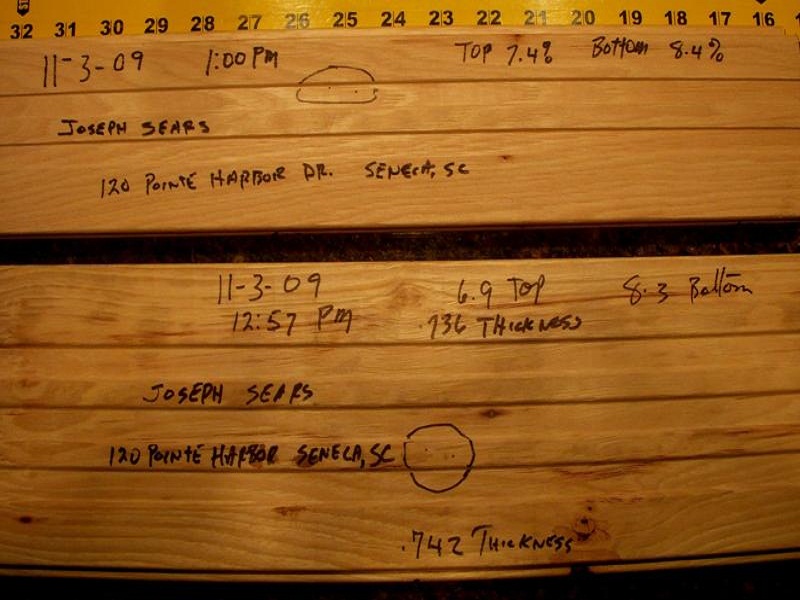 32 31 30 29 28 27 26 25 24 23 22 21 20 19 18 17 16
11-3-09 1:00 PM TOP 7.4% Bottom 8.4%
JOSEPH SEARS
120 POINTE HARBOR DR. SENECA, SC
11-3-09 6.9 TOP 8.3 Bottom
12:57 PM .736 THICKNESS
JOSEPH SEARS
120 POINTE HARBOR SENECA, SC
.742 THICKNESS